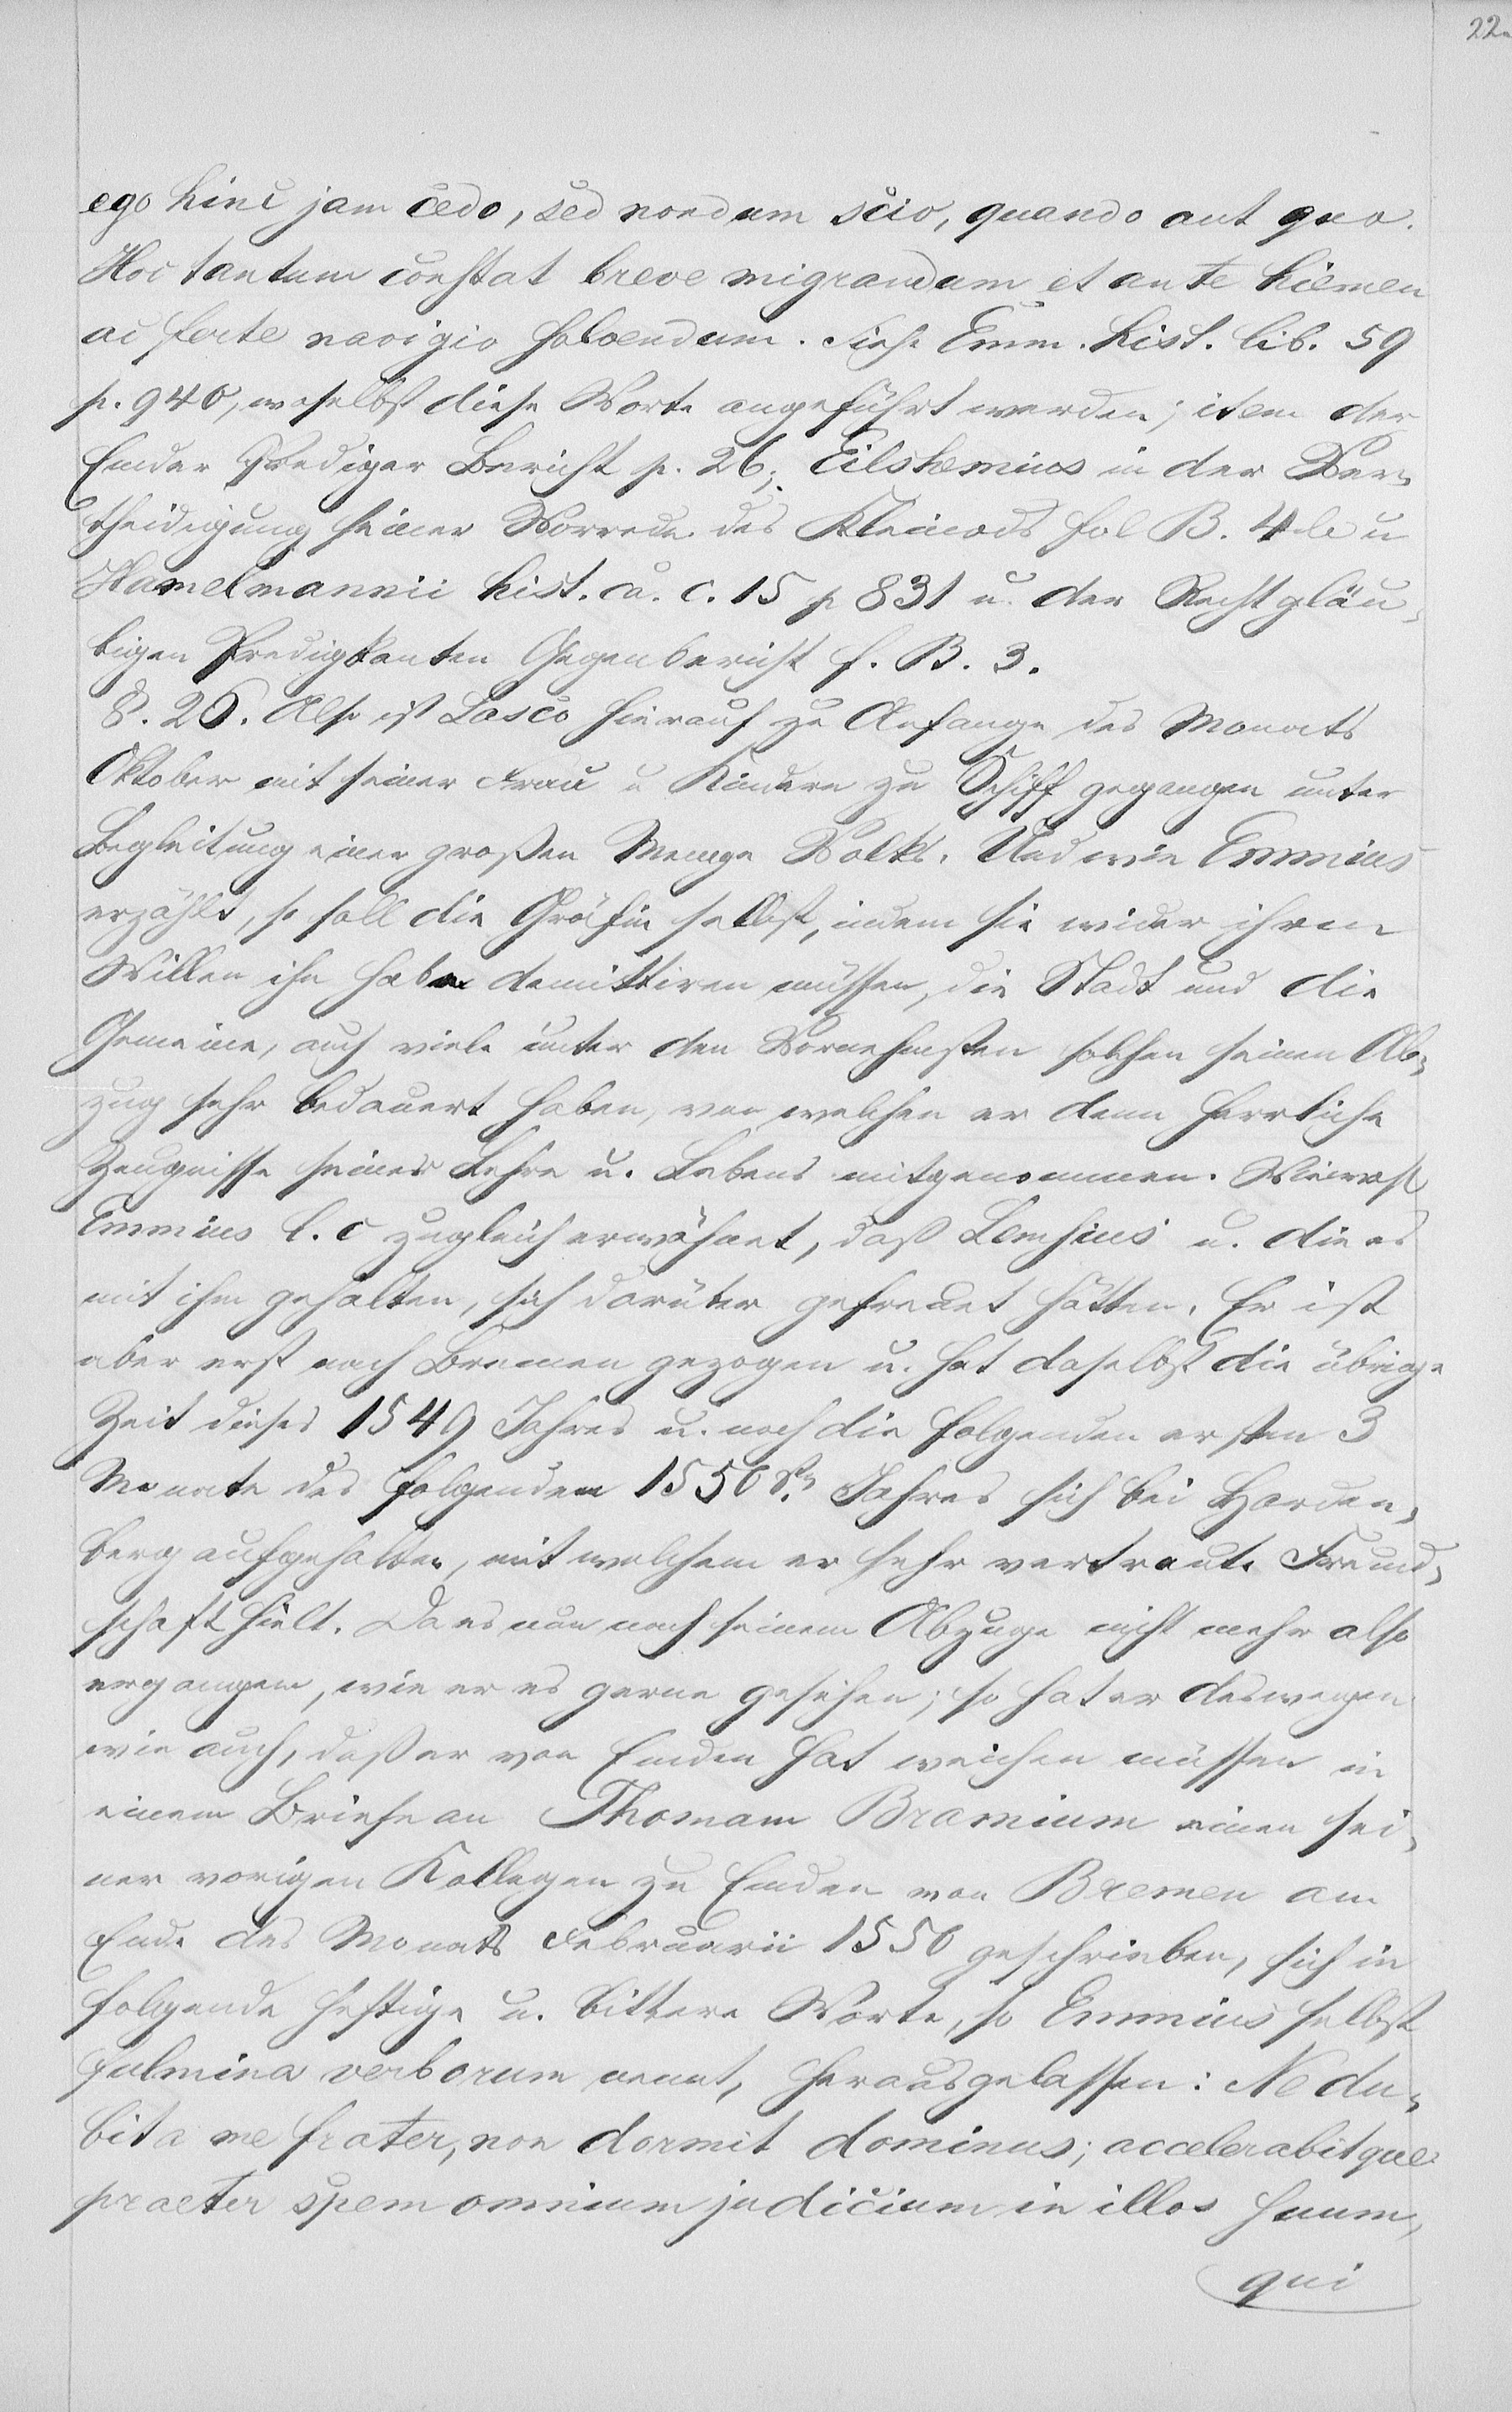 22.
ego hinc jam cedo, sed nondum scio, quando aut quo.
Hoc tantum constat breve migrandum et ante hiemem
ac forte navigio solvendum. Siehe Emm. hist. lib. 59
p. 940, woselbst diese Worte angeführt werden; item der
Emder Prediger Bericht p. 26; Eilshemius in der Ver-
theidigung seiner Vorrede des Kleinods fol B. 4 le u
Hamelmannii hist. ca. c. 15 p 831 u. der Rechtgläu-
bigen Predigkanten Gegenbericht f. B. 3.
§. 26. Also ist Lasco hierauf zu Anfange des Monats
Oktober mit seiner Frau u Kindern zu Schiff gegangen unter
Begleitung einer großen Menge Volks. Und wie Emmius
erzählt, so soll die Gräfin selbst, indem sie wider ihren
Willen ihn habe demittiren müssen, die Stadt und die
Gemeine, auch viele unter den Vornehmsten solchen seinen Ab-
zug sehr bedauert haben, von welchen er denn herrliche
Zeugnisse seiner Lehre u. Lebens mitgenommen. Wiewohl
Emmius l. c zugleich erwähnet, daß Lemsius u. die es
mit ihm gehalten, sich darüber gefreuet hätten. Er ist
aber erst nach Bremen gezogen u. hat daselbst die übrige
Zeit dieses 1549 Jahres u. noch die folgenden ersten 3
Monate des folgenden 1550st. Jahres sich bei Harden-
berg aufgehalten, mit welchem er sehr vertraute Freund-
schaft hielt. Da es nun nach seinem Abzuge nicht mehr also
ergangen, wie er es gerne gesehen; so hat er deswegen
wie auch, daß er von Emden hat weichen müssen in
einem Briefe an Thomam Bramium einen sei-
ner vorigen Kollegen zu Emden von Bremen am
Ende des Monats Februarii 1550 geschrieben, sich in
folgende heftige u. bittere Worte, so Emmius selbst
fulmina verborum nennt, herausgelassen: Ne du-
bita me frater, non dormit dominus; accelerabitque
praeter spem omnium judicium in illos suum,
qui